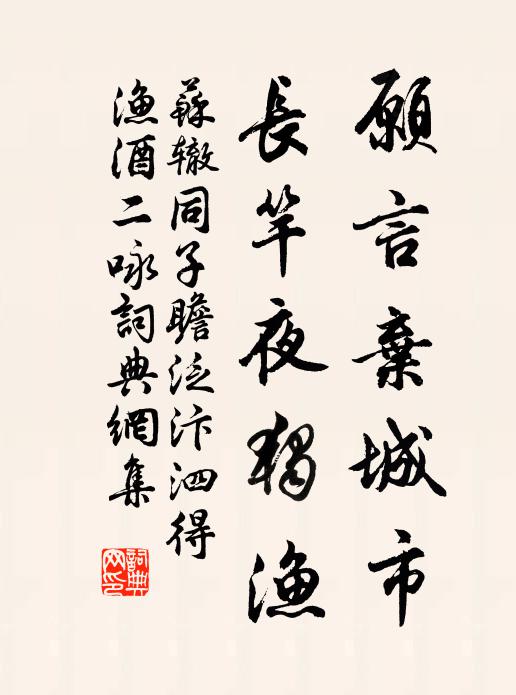 願言棄城市
長竿夜獨漁
蘇轍同子瞻泛汴泗得
漁酒二咏詞典網集
詞典网印